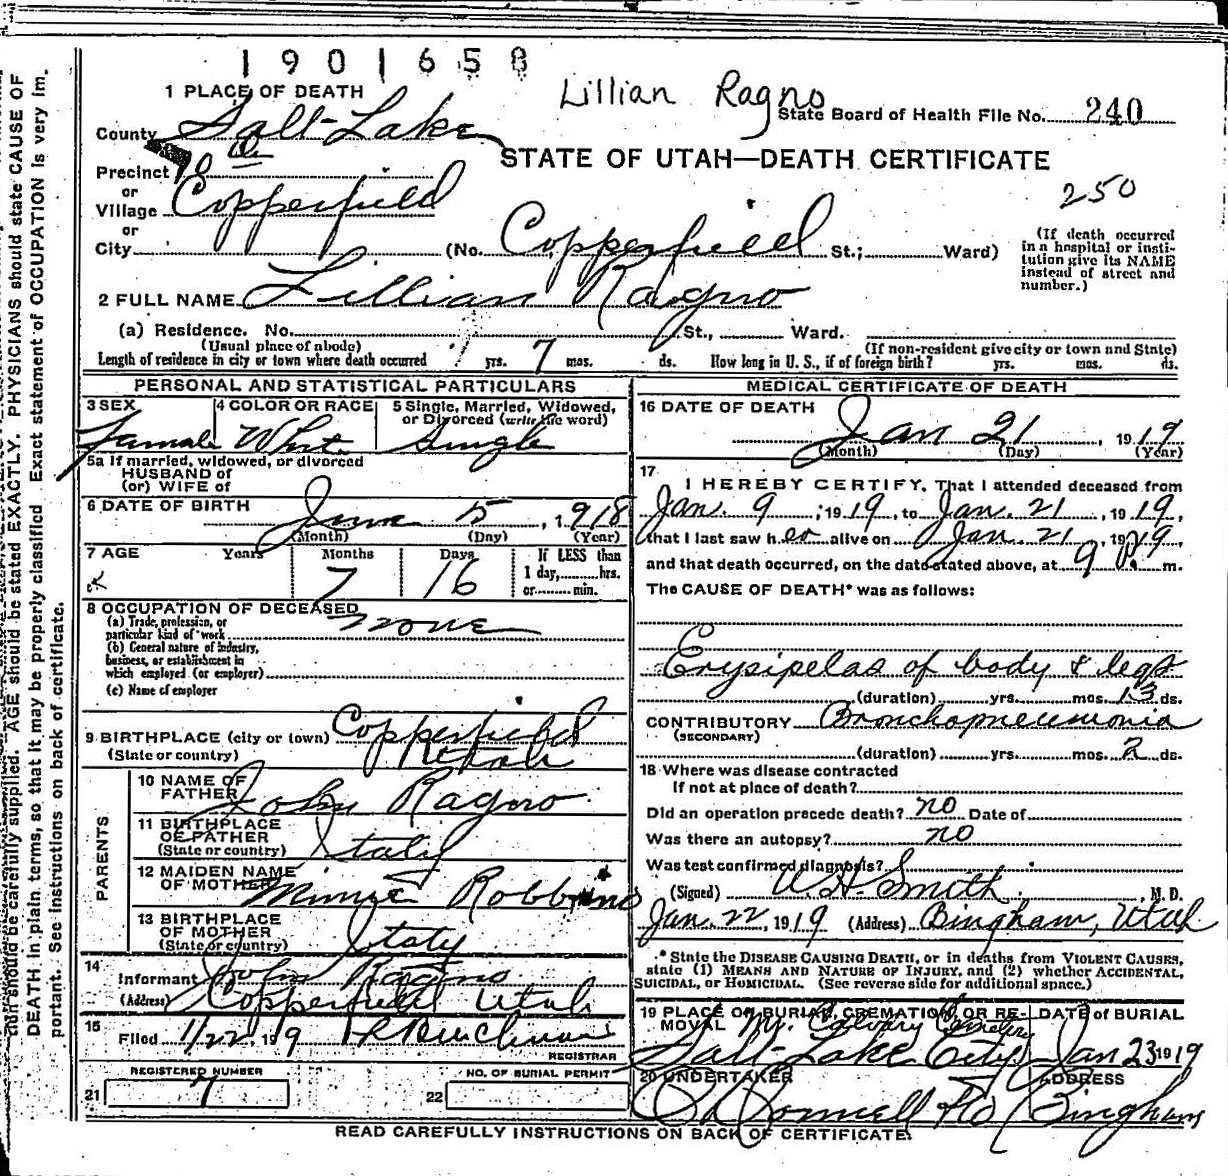 1901658
Lillian Ragno
1 PLACE OF DEATH
State Board of Health File No. 240
County Salt Lake
STATE OF UTAH—DEATH CERTIFICATE
Precinct
250
or
Village Copperfield
or
City (No. Copperfield St.; Ward)
(If death occurred in a hospital or institution give its NAME instead of street and number.)
2 FULL NAME Lillian Ragno
(a) Residence. No. St., Ward.
(Usual place of abode) (If non-resident give city or town and State)
Length of residence in city or town where death occurred yrs. 7 mos. ds. How long in U. S., if of foreign birth? yrs. mos. ds.
PERSONAL AND STATISTICAL PARTICULARS
3 SEX 4 COLOR OR RACE 5 Single, Married, Widowed, or Divorced (write the word)
Famale White Single
5a If married, widowed, or divorced
HUSBAND of
(or) WIFE of
6 DATE OF BIRTH
June 5, 1918
(Month) (Day) (Year)
7 AGE Years Months Days If LESS than
7 16 1 day, hrs.
or min.
8 OCCUPATION OF DECEASED
(a) Trade, profession, or
particular kind of work none
(b) General nature of industry,
business, or establishment in
which employed (or employer)
(c) Name of employer
9 BIRTHPLACE (city or town) Copperfield
(State or country) Utah
PARENTS
10 NAME OF FATHER John Ragno
11 BIRTHPLACE OF FATHER
(State or country) Italy
12 MAIDEN NAME OF MOTHER Minnie Robbino
13 BIRTHPLACE OF MOTHER
(State or country) Italy
14
Informant John Ragno
(Address) Copperfield Utah
15
Filed 1/22 1919
REGISTRAR
REGISTERED NUMBER NO. OF BURIAL PERMIT
21 7 22
MEDICAL CERTIFICATE OF DEATH
16 DATE OF DEATH
Jan 21, 1919
(Month) (Day) (Year)
17
I HEREBY CERTIFY, That I attended deceased from
Jan. 9, 1919, to Jan. 21, 1919,
that I last saw her alive on Jan. 21, 1919,
and that death occurred, on the date stated above, at 9 P. m.
The CAUSE OF DEATH* was as follows:
Erysipelas of body & legs
(duration) yrs. mos. 13 ds.
CONTRIBUTORY Bronchopneumonia
(SECONDARY)
(duration) yrs. mos. 2 ds.
18 Where was disease contracted
If not at place of death?
Did an operation precede death? no Date of
Was there an autopsy? no
Was test confirmed diagnosis?
(Signed) W H Smith, M. D.
Jan. 22, 1919 (Address) Bingham, Utah
* State the DISEASE CAUSING DEATH, or in deaths from VIOLENT CAUSES,
state (1) MEANS AND NATURE OF INJURY, and (2) whether ACCIDENTAL,
SUICIDAL, or HOMICIDAL. (See reverse side for additional space.)
19 PLACE OF BURIAL, CREMATION, OR REMOVAL DATE of BURIAL
Mt. Calvary Cemetery
Salt Lake City Jan 23 1919
20 UNDERTAKER ADDRESS
O'Donnell & Co Bingham
READ CAREFULLY INSTRUCTIONS ON BACK OF CERTIFICATE.
tion should be carefully supplied. AGE should be stated EXACTLY. PHYSICIANS should state CAUSE OF
DEATH in plain terms, so that it may be properly classified. Exact statement of OCCUPATION is very im-
portant. See instructions on back of certificate.